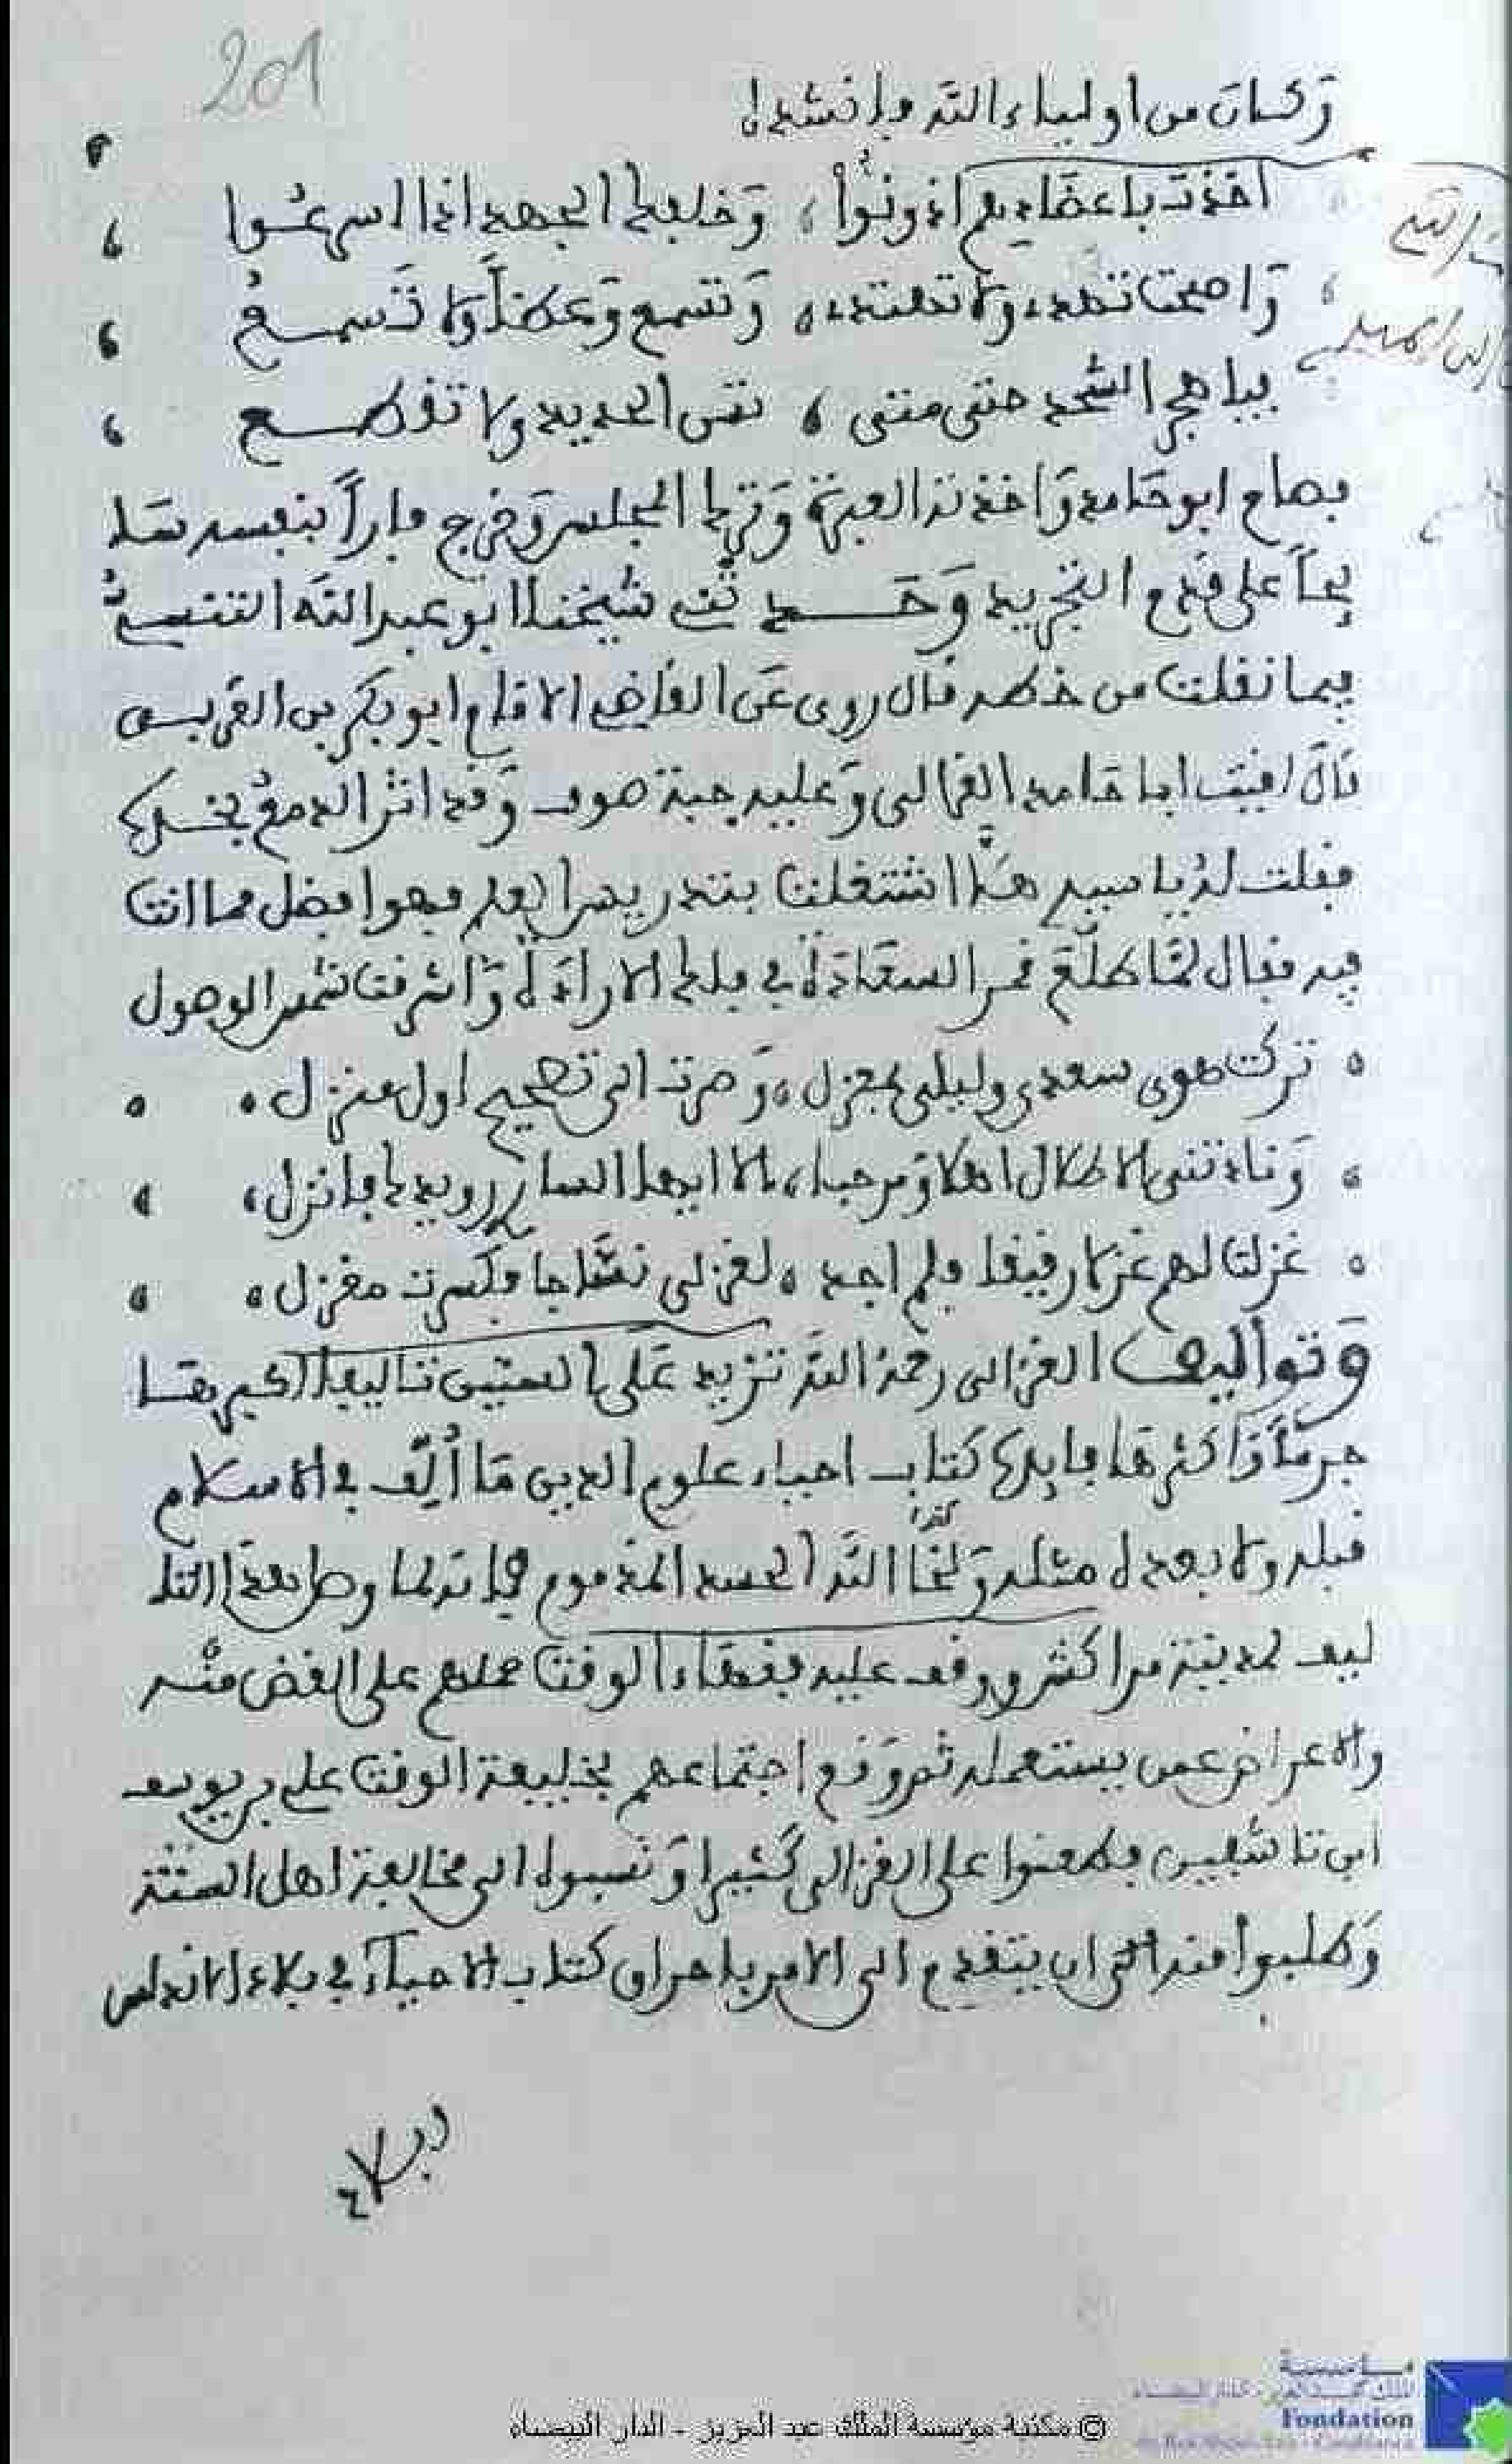 201
وكان من اولياء الله وانشده
اخذت باعضادهم اذ ونوا ، وخلفك الجهد اذا اسرعوا
واصبحت تهدي ولا تهتدي ، وتسمع وعظا ولا تسمع
فيا حجر الشحذ حتى متى ، تسن الحديد ولا تقطع
فصاح ابو حامد واخذته العبرة وترك المجلس وخرج فارا بنفسه سا
يحا على قدم التجريد وحدثني شيخنا ابو عبد الله التنسي
فيما نقلت من خطه قال روى عن القاضي الامام ابو بكر بن العربي
قال لقيت ابا حامد الغزالي وعليه جبة صوف وقد اثر الدمع بخده
فقلت له يا سيدي هلا اشتغلت بتدريس العلم فهو افضل مما انت
فيه فقال لما طلع قمر السعادة في فلك الارادة واشرقت شمس الوصول
تركت هوى سعدى وليلى بمعزل ، وصرت الى تصحيح اول منزل
ونادتني الاطلال اهلا ومرحبا ، الا ايها السار رويدك فانزل
غزلت لهم غزلا رقيقا ولم اجد ، لغزلي نساجا فكسرت مغزل
وتواليف الغزالي رحمه الله تزيد على الستين تاليفا اكبرها
جرما واكثرها فايدة كتاب احياء علوم الدين ما ألف في الاسلام
قبله ولا بعده مثله الله الحسد المذموم فانه لما وصل هذا التا
ليف لمدينة مراكش ووقف عليه فقهاء الوقت حملهم على الغض منه
والاعراض عمن يستعمله ثم وقع اجتماعهم بخليفة الوقت علي بن يوسف
ابن تاشفين فطعنوا على الغزالي كثيرا ونسبوه الى مخالفة اهل السنة
وطلبوا منه ان يتقدم الى الامر باحراق كتاب الاحياء في بلاد الاندلس
وبلاد
مؤسسة
Fondation
© مكتبة مؤسسة الملك عبد العزيز - الدار البيضاء